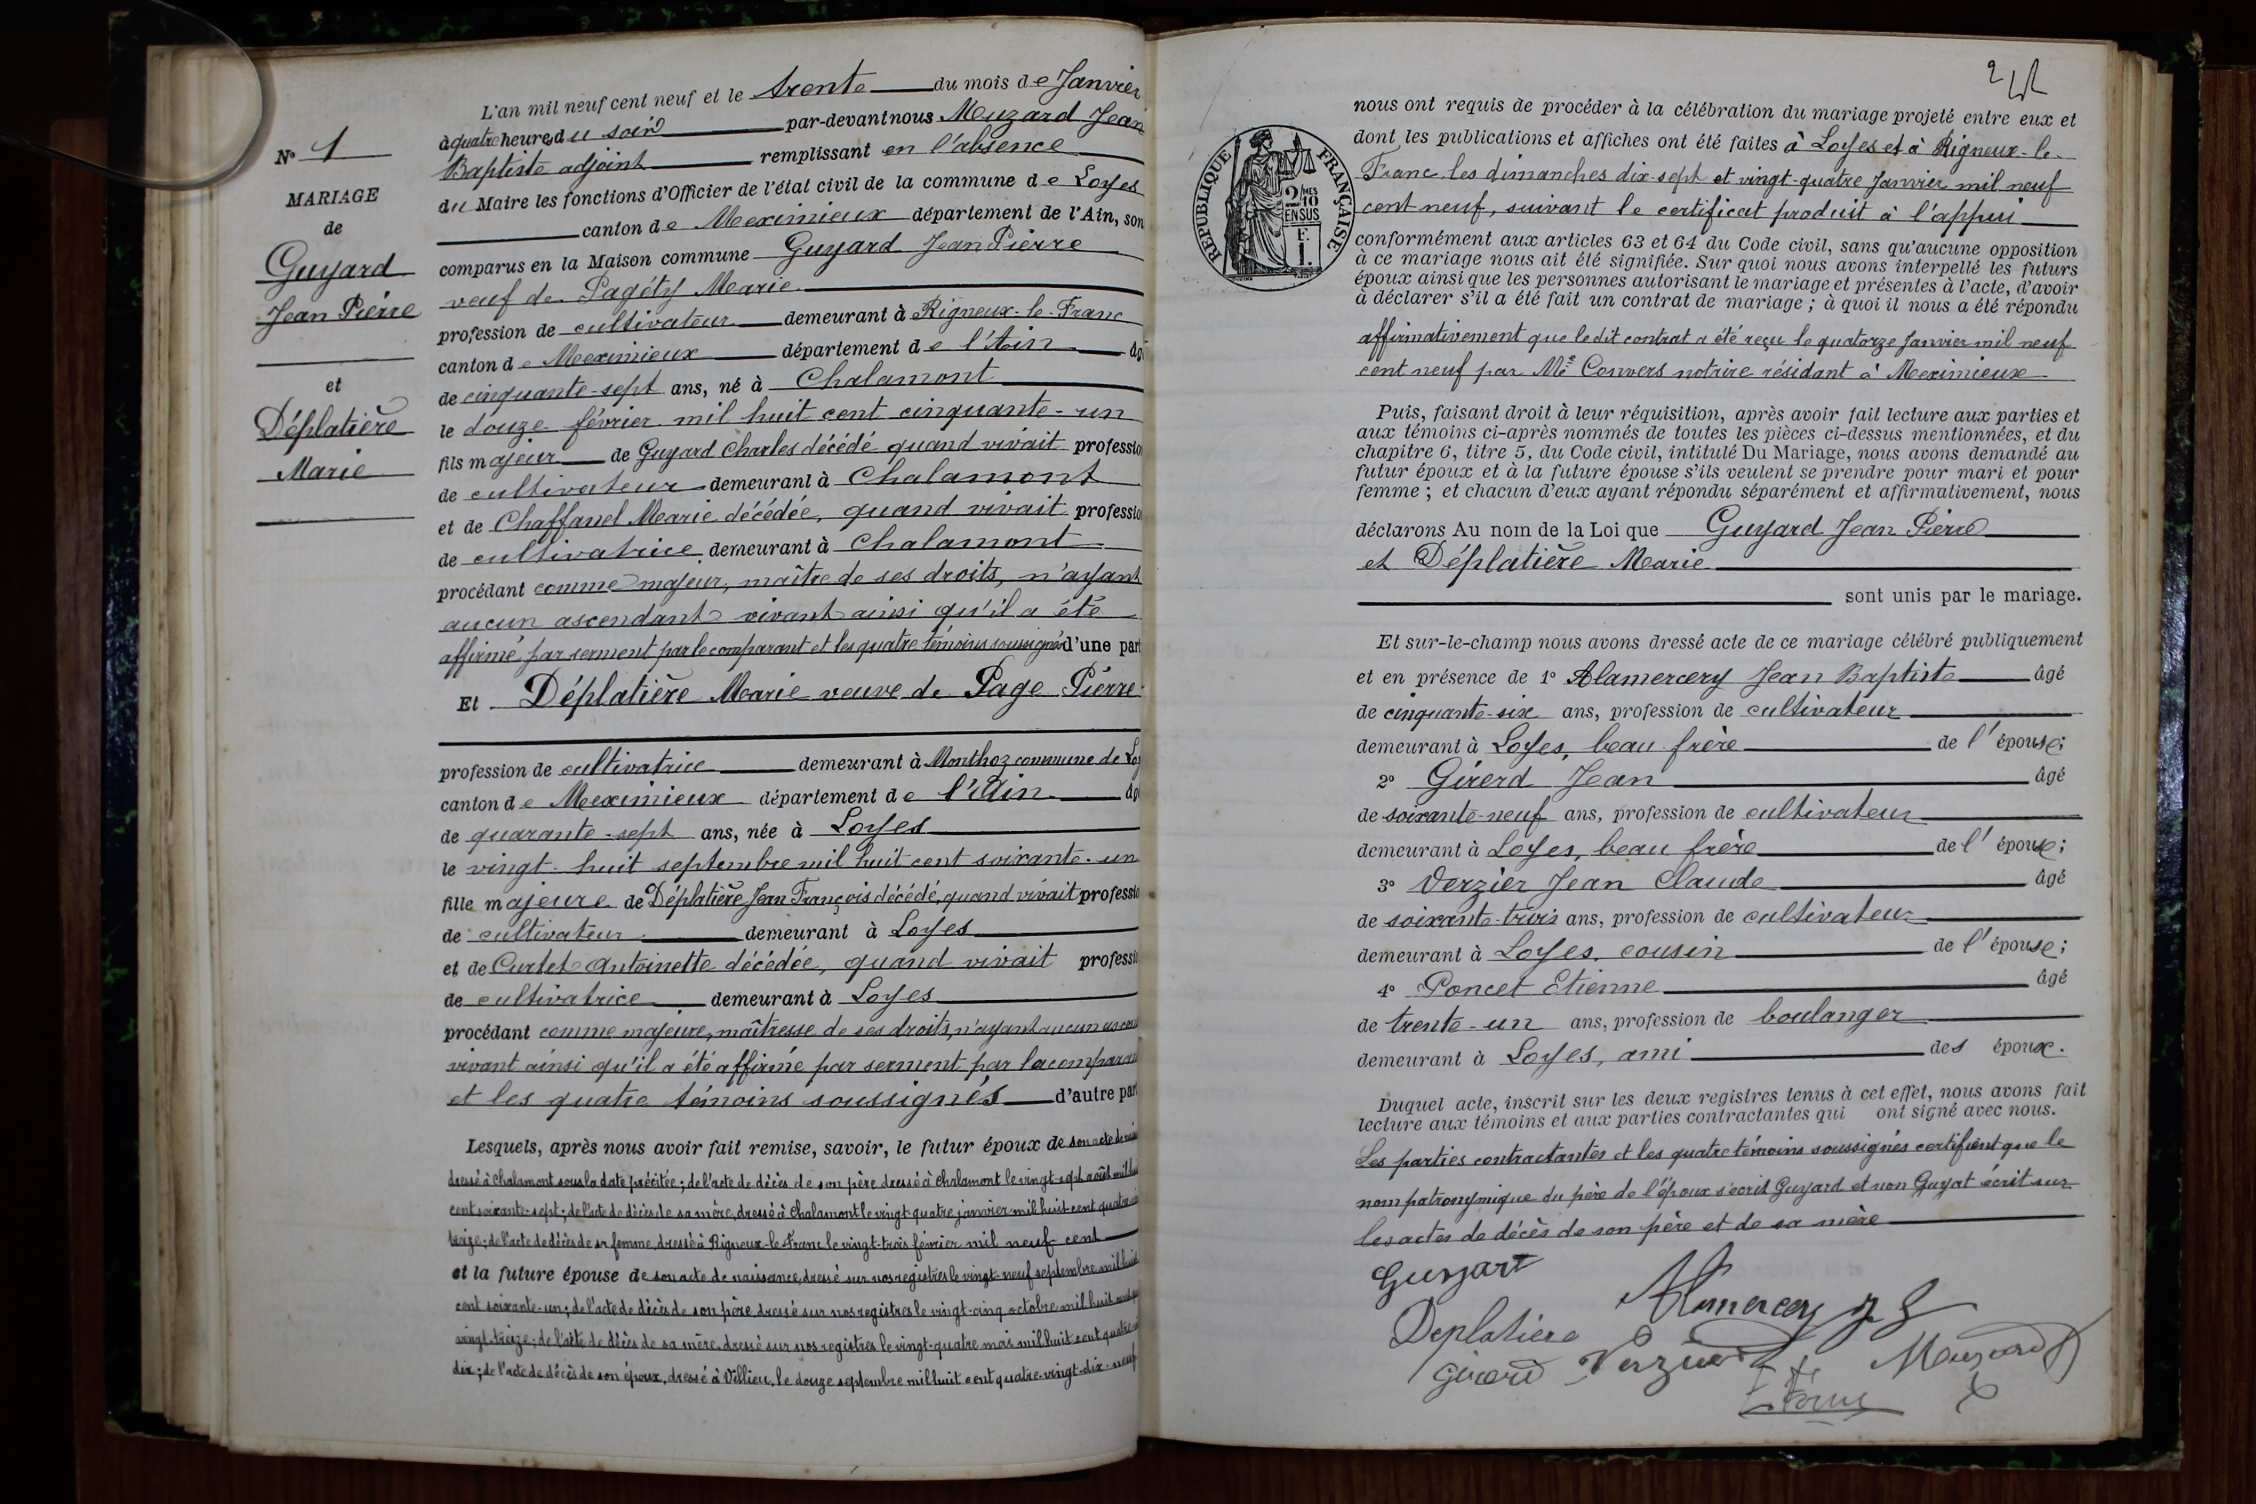 L'an mil neuf cent neuf et le trente du mois de Janvier
à quatre heures du soir par-devant nous Meuzard Jean
Baptiste adjoint remplissant en l'absence
du Maire les fonctions d'Officier de l'état civil de la commune de Loyes
canton de Meximieux département de l'Ain, son
comparus en la Maison commune Guyard Jean Pierre
veuf de Pagéty Marie
profession de cultivateur demeurant à Rigneux-le-Franc
canton de Meximieux département de l'Ain
de cinquante-sept ans, né à Chalamont
le douze février mil huit cent cinquante-un
fils majeur de Guyard Charles décédé quand vivait professio
de cultivateur demeurant à Chalamont
et de Chaffanel Marie décédée, quand vivait professio
de cultivatrice demeurant à Chalamont
procédant comme majeur, maître de ses droits, n'ayant
aucun ascendant vivant ainsi qu'il a été
affirmé par serment par le comparant et les quatre témoins soussignés d'une part
Et Déplatière Marie veuve de Page Pierre
profession de cultivatrice demeurant à Monthoz commune de Loy
canton de Meximieux département de l'Ain
de quarante-sept ans, née à Loyes
le vingt-huit septembre mil huit cent soixante-un
fille majeure de Déplatière Jean François décédé, quand vivait professio
de cultivateur demeurant à Loyes
et de Curtet Antoinette décédée, quand vivait professio
de cultivatrice demeurant à Loyes
procédant comme majeure, maîtresse de ses droits, n'ayant aucun ascend
vivant ainsi qu'il a été affirmé par serment par la comparan
et les quatre témoins soussignés d'autre part
Lesquels, après nous avoir fait remise, savoir, le futur époux de son acte de nais
dressé à Chalamont sous la date précitée; de l'acte de décès de son père dressé à Chalamont le vingt-sept août mil huit
cent soixante-sept; de l'acte de décès de sa mère, dressé à Chalamont le vingt-quatre janvier mil huit cent quatre
treize; de l'acte de décès de sa femme, dressé à Rigneux-le-Franc le vingt-trois février mil neuf cent
et la future épouse de son acte de naissance, dressé sur nos registres le vingt-neuf septembre mil huit
cent soixante-un; de l'acte de décès de son père, dressé sur nos registres le vingt-cinq octobre mil huit cent
vingt-treize; de l'acte de décès de sa mère dressé sur nos registres le vingt-quatre mars mil huit cent quatre
dix; de l'acte de décès de son époux, dressé à Villieu, le douze septembre mil huit cent quatre-vingt-dix-neuf
N° 1
MARIAGE
de
Guyard
Jean Pierre
et
Déplatière
Marie
2
RÉPUBLIQUE FRANÇAISE
2/10
EN SUS
F.
1.
nous ont requis de procéder à la célébration du mariage projeté entre eux et
dont les publications et affiches ont été faites à Loyes et à Rigneux-le-
Franc, les dimanches dix-sept et vingt-quatre Janvier mil neuf
cent neuf, suivant le certificat produit à l'appui
conformément aux articles 63 et 64 du Code civil, sans qu'aucune opposition
à ce mariage nous ait été signifiée. Sur quoi nous avons interpellé les futurs
époux ainsi que les personnes autorisant le mariage et présentes à l'acte, d'avoir
à déclarer s'il a été fait un contrat de mariage; à quoi il nous a été répondu
affirmativement que ledit contrat a été reçu le quatorze Janvier mil neuf
cent neuf par Me Convers notaire résidant à Meximieux
Puis, faisant droit à leur réquisition, après avoir fait lecture aux parties et
aux témoins ci-après nommés de toutes les pièces ci-dessus mentionnées, et du
chapitre 6, titre 5, du Code civil, intitulé Du Mariage, nous avons demandé au
futur époux et à la future épouse s'ils veulent se prendre pour mari et pour
femme; et chacun d'eux ayant répondu séparément et affirmativement, nous
déclarons Au nom de la Loi que Guyard Jean Pierre
et Déplatière Marie
sont unis par le mariage.
Et sur-le-champ nous avons dressé acte de ce mariage célébré publiquement
et en présence de 1° Alamercery Jean Baptiste âgé
de cinquante-six ans, profession de cultivateur
demeurant à Loyes, beau frère de l'épouse;
2° Girerd Jean âgé
de soixante-neuf ans, profession de cultivateur
demeurant à Loyes, beau frère de l'épouse;
3° Verzier Jean Claude âgé
de soixante-trois ans, profession de cultivateur
demeurant à Loyes, cousin de l'épouse;
4° Poncet Etienne âgé
de trente-un ans, profession de boulanger
demeurant à Loyes, ami des époux.
Duquel acte, inscrit sur les deux registres tenus à cet effet, nous avons fait
lecture aux témoins et aux parties contractantes qui ont signé avec nous.
Les parties contractantes et les quatre témoins soussignés certifient que le
nom patronymique du père de l'époux s'écrit Guyard et non Guyat écrit sur
les actes de décès de son père et de sa mère
Guyart
Alamercery J B
Deplatière
Girerd Verzier Meuzard